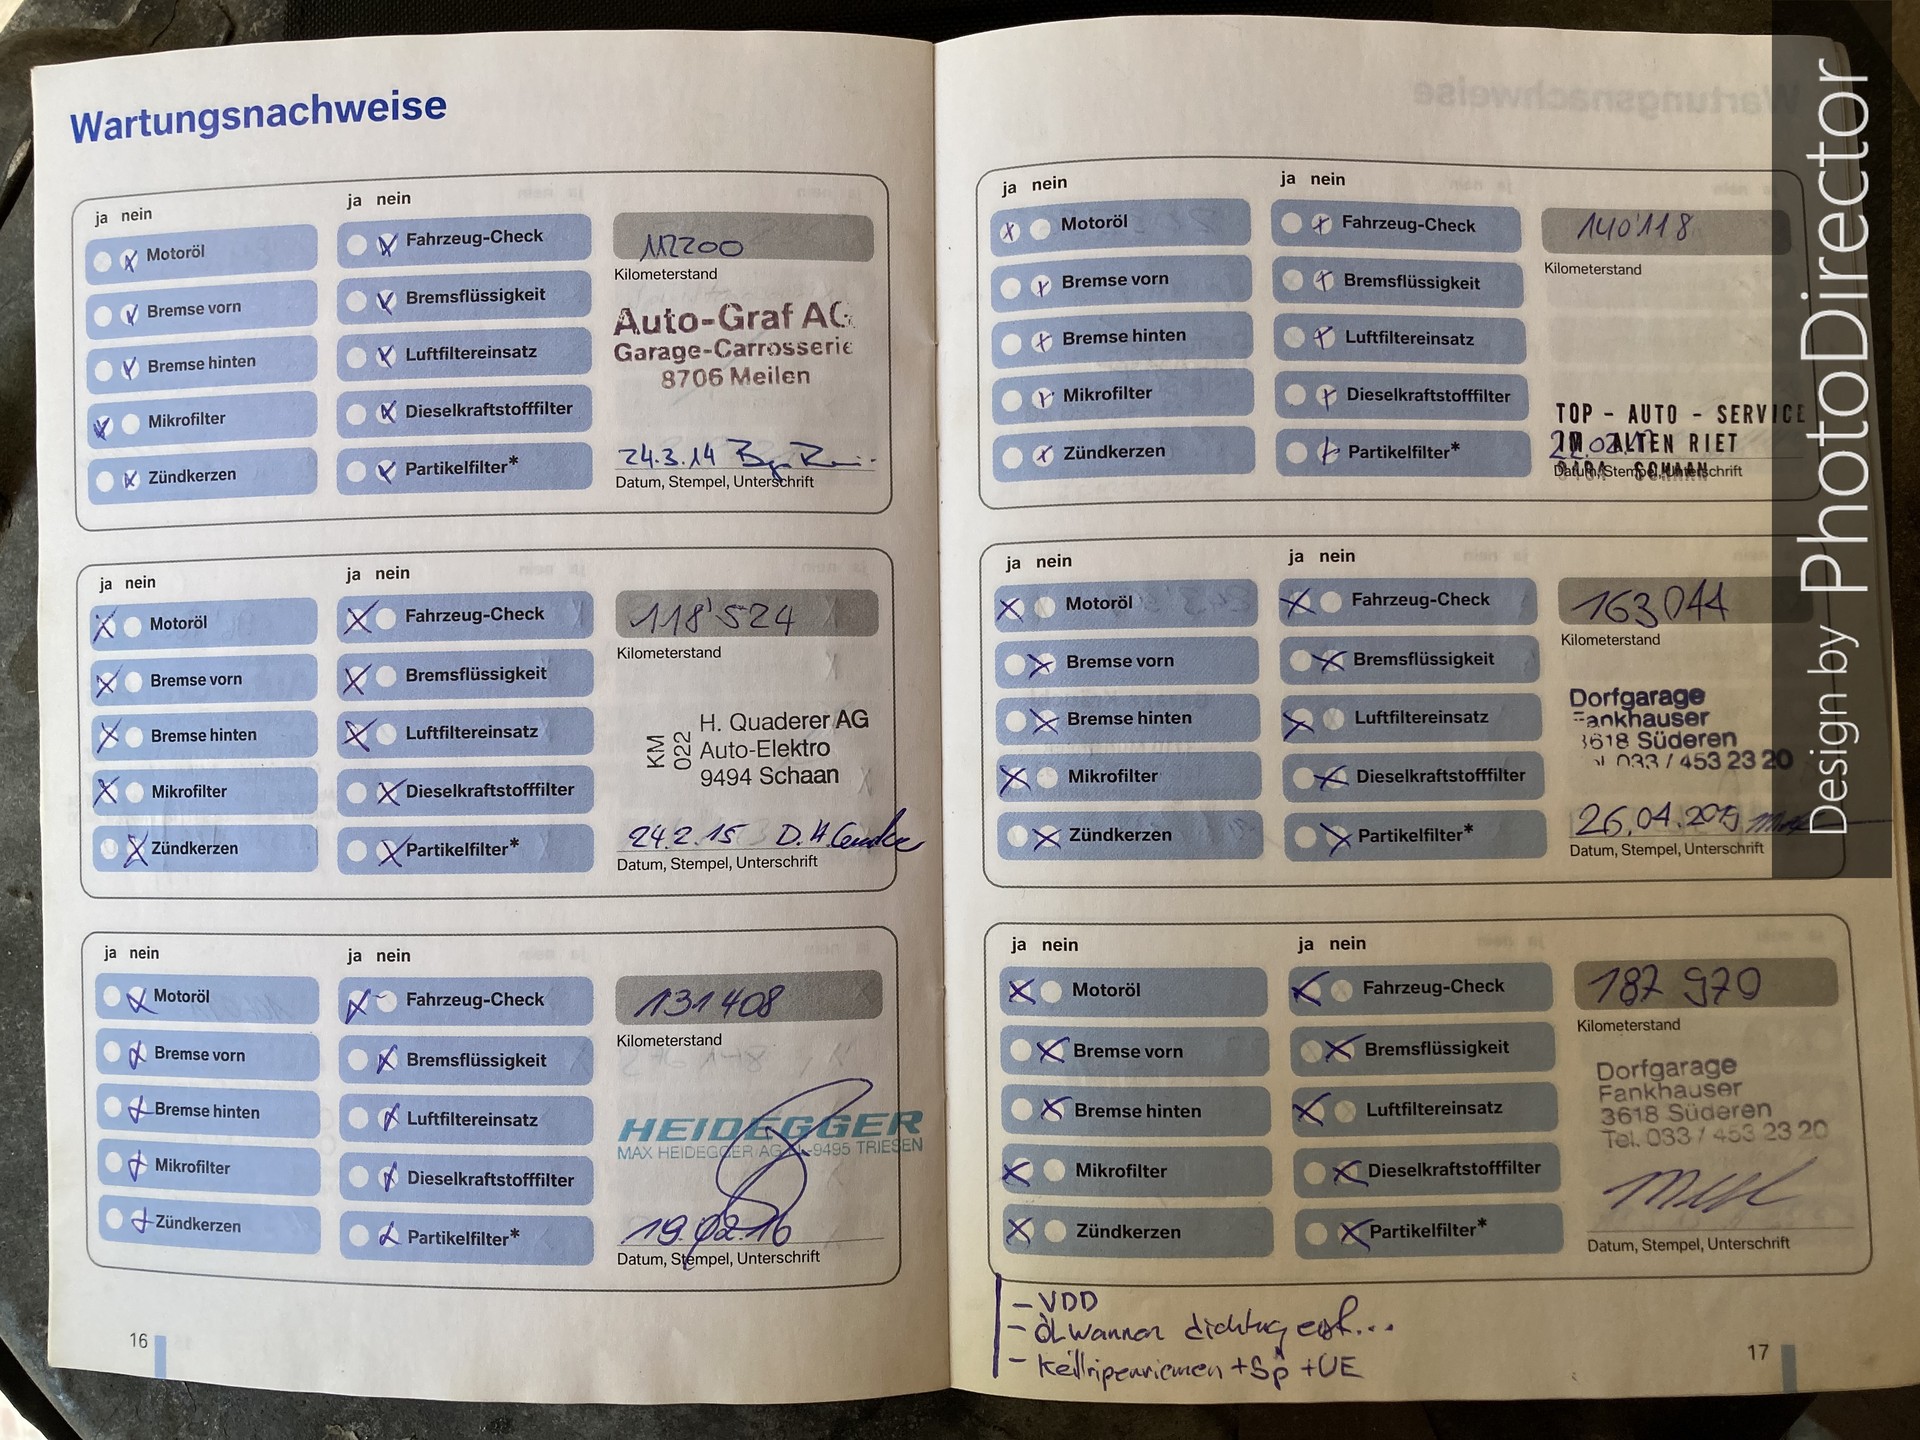 Wartungsnachweise
ja nein
Motoröl
Bremse vorn
Bremse hinten
Mikrofilter
Zündkerzen
ja nein
Fahrzeug-Check
Bremsflüssigkeit
Luftfiltereinsatz
Dieselkraftstofffilter
Partikelfilter*
Kilometerstand
Auto-Graf AG
Garage-Carrosserie
8706 Meilen
24.3.14
Datum, Stempel, Unterschrift
ja nein
Motoröl
Bremse vorn
Bremse hinten
Mikrofilter
Zündkerzen
ja nein
Fahrzeug-Check
Bremsflüssigkeit
Luftfiltereinsatz
Dieselkraftstofffilter
Partikelfilter*
118'524
Kilometerstand
KM
022
H. Quaderer AG
Auto-Elektro
9494 Schaan
24.2.15
Datum, Stempel, Unterschrift
ja nein
Motoröl
Bremse vorn
Bremse hinten
Mikrofilter
Zündkerzen
ja nein
Fahrzeug-Check
Bremsflüssigkeit
Luftfiltereinsatz
Dieselkraftstofffilter
Partikelfilter*
131408
Kilometerstand
HEIDEGGER
MAX HEIDEGGER AG FL-9495 TRIESEN
19.02.16
Datum, Stempel, Unterschrift
16
ja nein
Motoröl
Bremse vorn
Bremse hinten
Mikrofilter
Zündkerzen
ja nein
Fahrzeug-Check
Bremsflüssigkeit
Luftfiltereinsatz
Dieselkraftstofffilter
Partikelfilter*
140'118
Kilometerstand
TOP - AUTO - SERVICE
IM ALTEN RIET
SCHAAN
Datum, Stempel, Unterschrift
ja nein
Motoröl
Bremse vorn
Bremse hinten
Mikrofilter
Zündkerzen
ja nein
Fahrzeug-Check
Bremsflüssigkeit
Luftfiltereinsatz
Dieselkraftstofffilter
Partikelfilter*
163044
Kilometerstand
Dorfgarage
Fankhauser
3618 Süderen
033 / 453 23 20
26.04.2019
Datum, Stempel, Unterschrift
ja nein
Motoröl
Bremse vorn
Bremse hinten
Mikrofilter
Zündkerzen
ja nein
Fahrzeug-Check
Bremsflüssigkeit
Luftfiltereinsatz
Dieselkraftstofffilter
Partikelfilter*
187 970
Kilometerstand
Dorfgarage
Fankhauser
3618 Süderen
Tel. 033 / 453 23 20
Datum, Stempel, Unterschrift
- VDD
- ölwannen dichtug
- Keilripenriemen + Sp + UE
17
Design by PhotoDirector